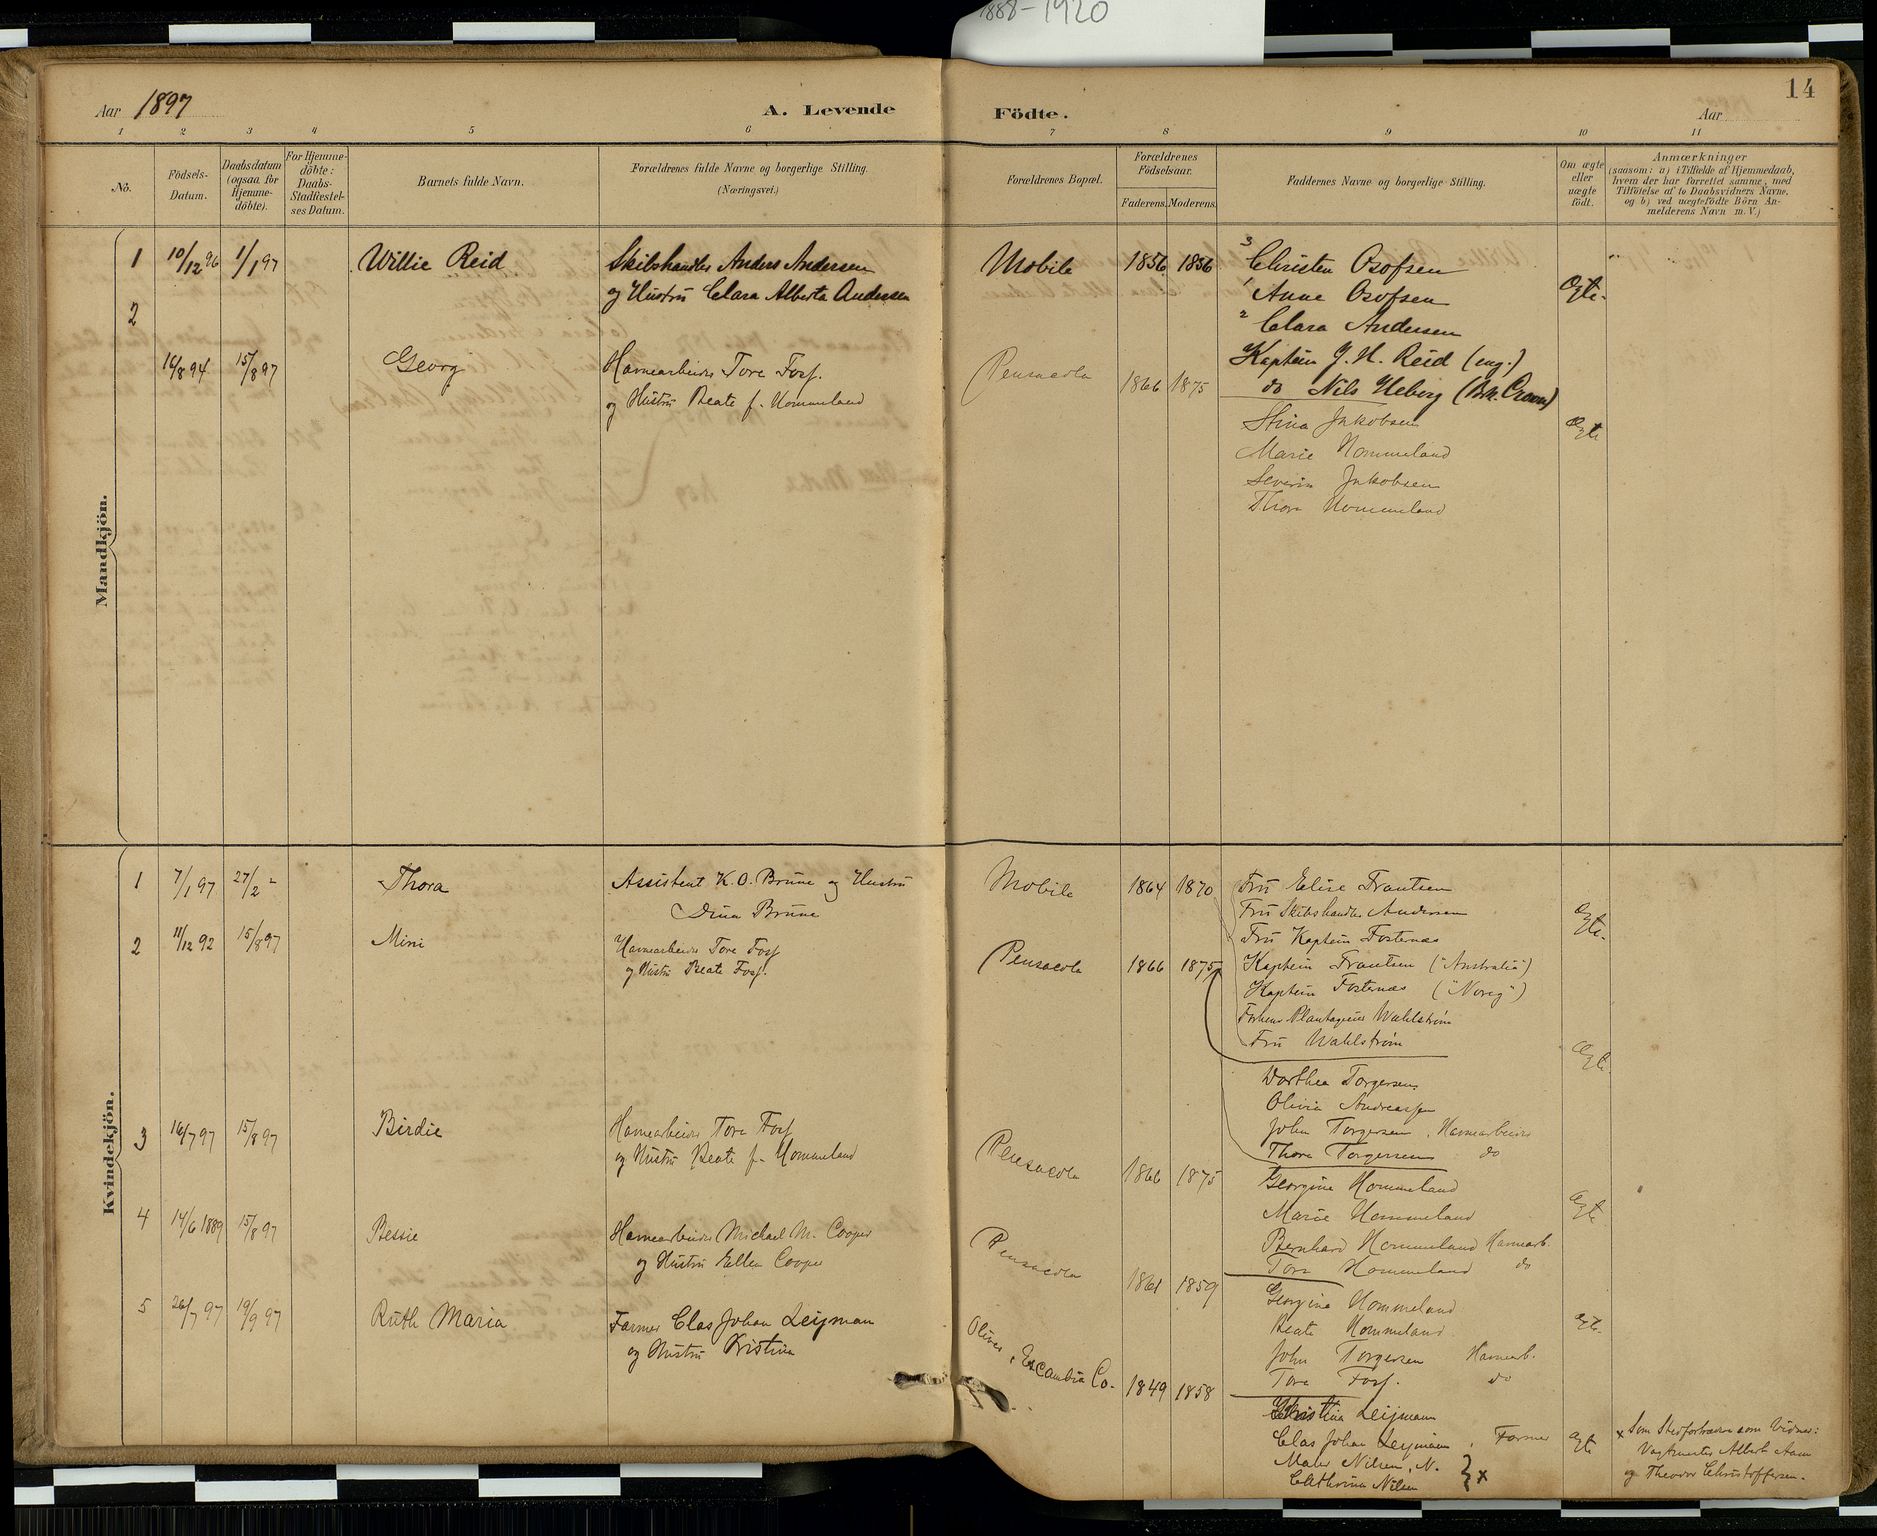 1888-1920
14
Aar 1897
A. Levende Födte.
Aar
1 2 3 4 5 6 7 8 9 10 11
No.
Födsels-Datum.
Daabsdatum (ogsaa for Hjemme-döbte).
For Hjemme-döbte: Daabs-Stadfæstel-ses Datum.
Barnets fulde Navn.
Forældrenes fulde Navne og borgerlige Stilling. (Næringsvei.)
Forældrenes Bopæl.
Forældrenes Födselsaar.
Faderens. Moderens.
Faddernes Navne og borgerlige Stilling.
Om ægte eller uægte födt.
Anmærkninger
(saasom: a) i Tilfælde af Hjemmedaab,
hvem der har forrettet samme, med
Tilföielse af to Daabsvidners Navne,
og b) ved uægtefödte Börn An-
melderens Navn m. V.)
Mandkjön.
1 10/12 96 1/1 97 Willie Reid Skibshandler Anders Andersen
og Hustru Clara Alberta Andersen
Mobile 1856 1856
3 Christen Osofsen
1 Anne Osofsen
2 Clara Andersen
Kaptein J. H. Reid (eng.)
do Nils Heborg (Brk.
Ægte.
2 16/8 94 15/8 97 Georg Havnearbeider Tore Fosf.
og Hustru Beate f. Hommeland
Pensacola 1866 1875
Stina Jakobsen
Marie Hommeland
Severin Jakobsen
Thore Hommeland
Ægte
Kvindekjön.
1 7/1 97 27/2 " Thora Assistent K. O. Brune og Hustru
Dina Brune
Mobile 1864 1870
Fru Elise Frantsen
Fru Skibshandler Andersen
Fru Kaptein Fosternæs
Kaptein Frantsen ("Australia")
Kaptein Fosternæs ("Noreg")
Plantageeier Wahlstrøm
Fru Wahlstrøm
Ægte.
2 11/12 92 15/8 97 Mini Havnearbeider Tore Fosf
og Hustru Beate Fosf.
Pensacola 1866 1875
Dorthea Torgersen
Olivia Andreassen
John Torgersen, Havnearbeider
Thore Torgersen do
Ægte
3 16/7 97 15/8 97 Birdie Havnearbeider Tore Fosf
og Hustru Beate f. Hommeland
Pensacola 1866 1875
Georgine Hommeland
Marie Hommeland
Bernhard Hommeland Havnearb.
Tore Hommeland do
Ægte
4 14/6 1889 15/8 97 Bessie Havnearbeider Michael M. Cooper
og Hustru Ellen Cooper
Pensacola 1861 1859
Georgine Hommeland
Beate Hommeland
John Torgersen Havnearb.
Tore Fosf. do
Ægte.
5 26/7 97 19/9 97 Ruth Maria Farmer Clas Johan Leijman
og Hustru Kristina
Olive, Escambia Co. 1849 1858
Kristina Leijmann
Clas Johan Leijmann, Farmer
Nilsen, N.
Cathrina Nilsen } x
Ægte
x Som Stedfortrædere som Vidner:
Albert Aam
og Theodor Christoffersen.